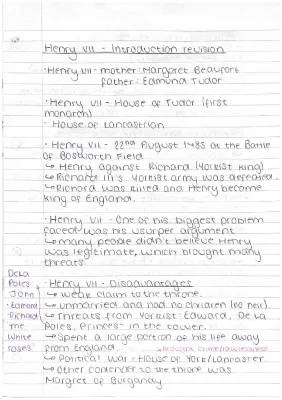 Henry VII - Introduction revision
·Henry VII - mother: Margret Beaufort
father: Edmund Tudor
·Henry VII - House of Tudor (first
monarch)
- House of Lancastrian
·Henry VII - 22nd August 1485 at the Battle
of Bosworth Field
↳ Henry against Richard (Yorkist King)
↳ Richard III's Yorkist army was defeated.
↳ Richard was killed and Henry become
King of England.
·Henry VII - One of his biggest problem
faced was his usurper argument
↳ many people didn't believe Henry
was legitimate, which brought many
threats.
·Henry VII - Disadvantages
↳ weak claim to the throne.
↳ unmarried and had no children (no heir).
↳ Threats from Yorkist: Edward, De La
Poles, Princes in the tower.
↳ Spent a large portion of his life away
from England.
↳ Political War - House of York/Lancaster
↳ Other contender to the throne was
Margret of Burganay
De La
Poles
John
Edmond
Richard
The
White
roses